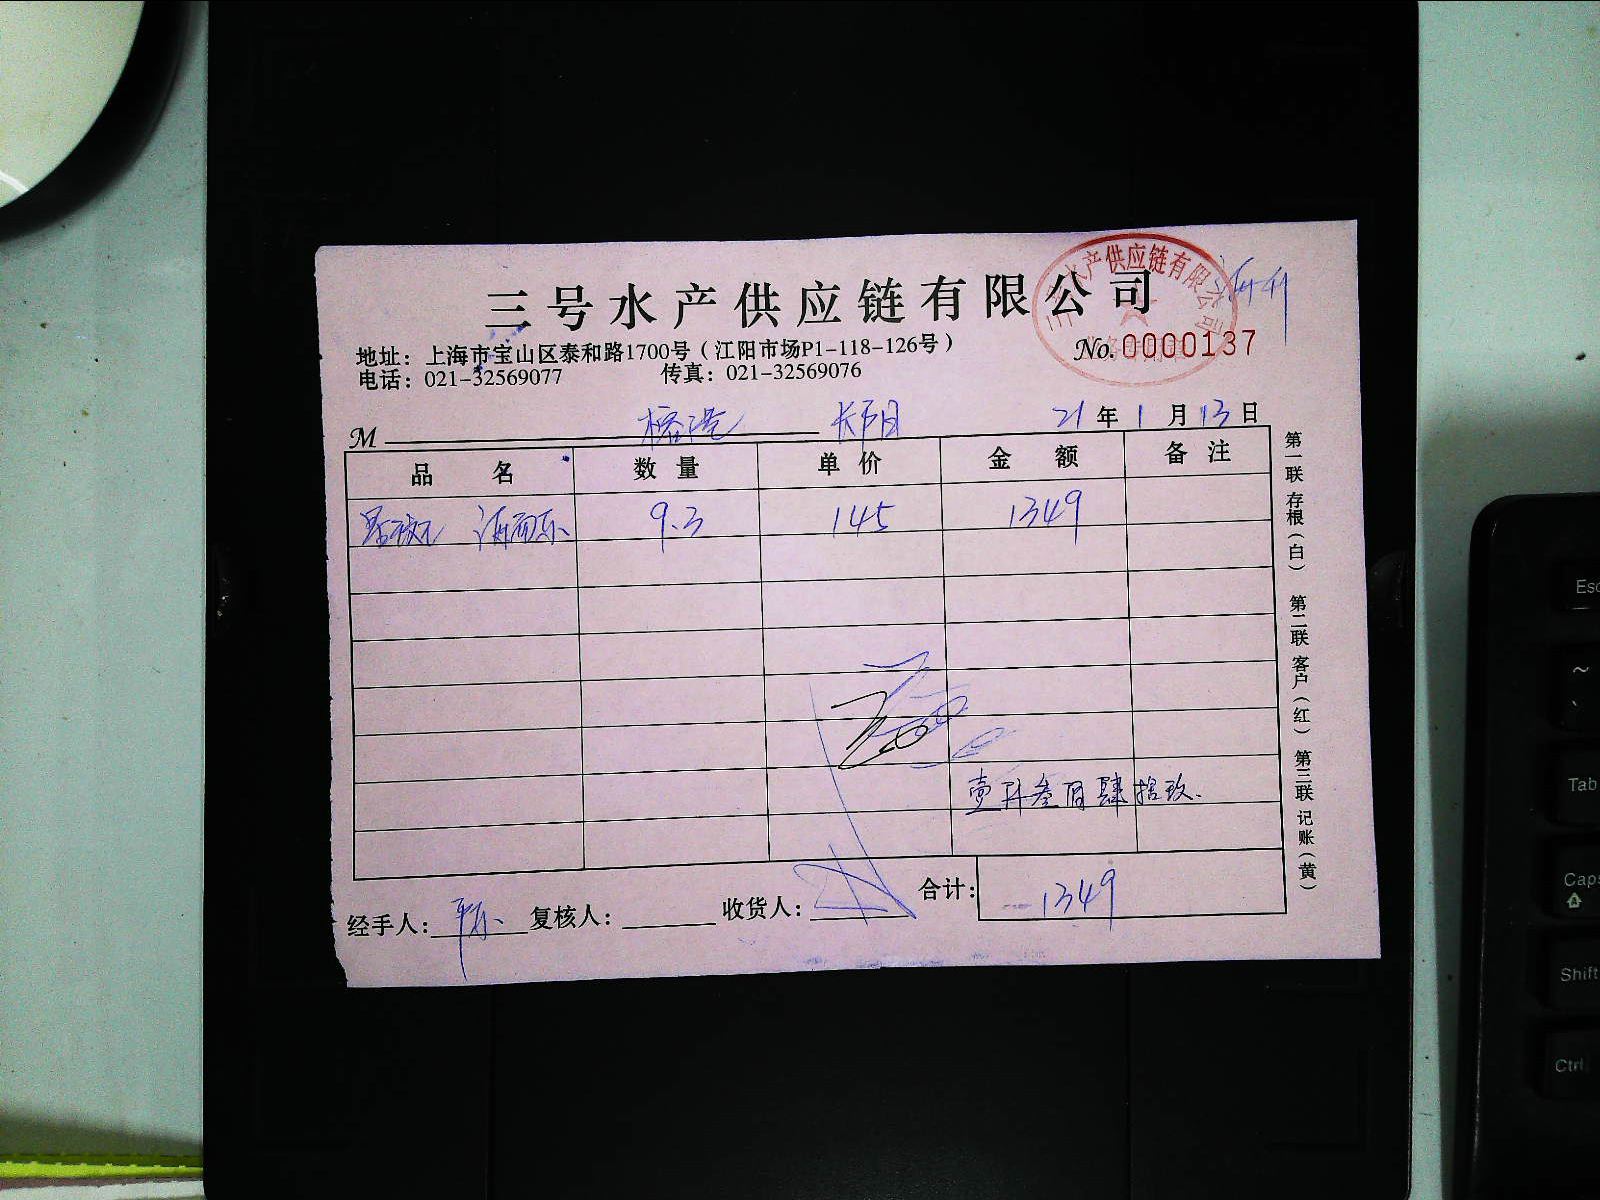 三号水产供应链有限公司
水产供应链有限公司
地址：上海市宝山区泰和路1700号（江阳市场P1-118-126号）
No.0000137
电话：021-32569077 传真：021-32569076
M 21年1月13日
品名 数量 单价 金额 备注
9.3 145 1349
壹仟叁百肆拾玖.
合计： 1349
经手人： 复核人： 收货人：
第一联存根（白） 第二联客户（红） 第三联记账（黄）
Esc
~
Tab
Caps
Shift
Ctrl